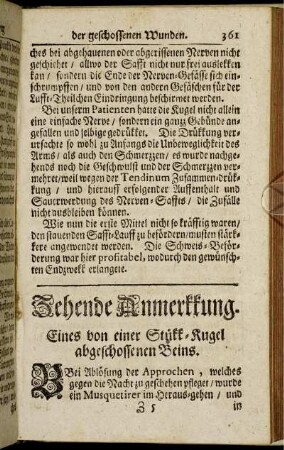 der geschossenen Wunden. 361
ches bei abgehauenen oder abgerissenen Nerven nicht
geschiehet / allwo der Safft nicht nur frei auslekken
kan / sondern die Ende der Nerven-Gefässe sich ein-
schrumpffen / und von den andern Gefäschen für der
Lufft-Theilchen Eindringung beschirmet werden.
Bei unserm Patienten hatte die Kugel nicht allein
eine einfache Nerve / sondern ein gantz Gebünde an-
gefallen und selbige gedrükket. Die Drükkung ver-
ursachte so wohl zu Anfangs die Unbeweglichkeit des
Arms / als auch den Schmertzen / es wurde nachge-
hends noch die Geschwulst und der Schmertzen ver-
mehret / weil wegen der Tendinum Zusammen-drük-
kung / und hierauff erfolgender Auffenthalt und
Sauerwerdung des Nerven-Saffts / die Zufälle
nicht ausbleiben können.
Wie nun die erste Mittel nicht so kräfftig waren /
den stauenden Safft-Lauff zu befördern / musten stärk-
kere angewendet werden. Die Schweis-Beför-
derung war hier profitabel, wodurch den gewünsch-
ten Endzwekk erlangete.
Zehende Anmerkkung.
Eines von einer Stükk-Kugel
abgeschossenen Beins.
Bei Ablösung der Approchen, welches
gegen die Nacht zu geschehen pfleget / wurde
ein Musquetirer im Heraus-gehen / und
Z 5 in